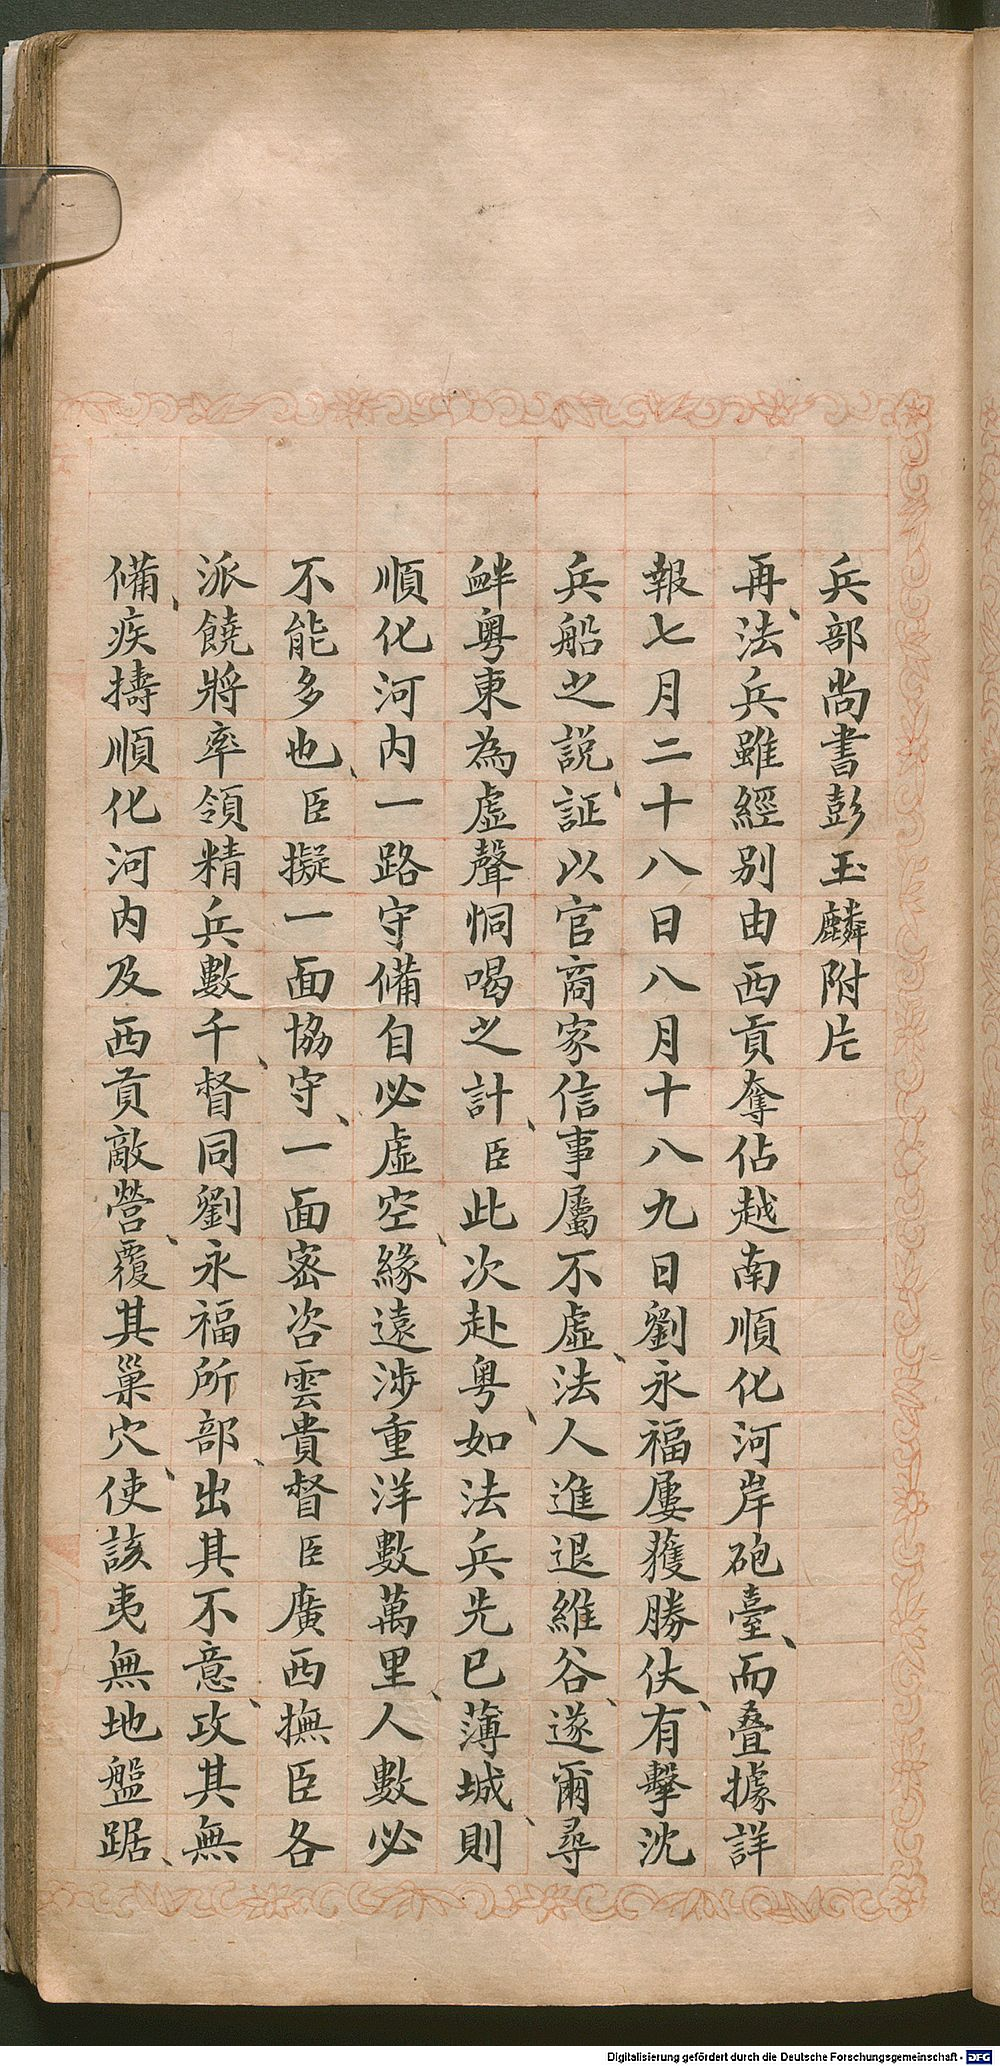 兵部尚書彭玉麟附片
再、法兵雖經別由西貢奪佔越南順化河岸砲臺、而叠據詳
報七月二十八日八月十八九日劉永福屢獲勝仗、有擊沈
兵船之説、証以官商家信事屬不虛、法人進退維谷、遂爾尋
衅粵東為虛聲恫喝之計、臣此次赴粵、如法兵先已薄城、則
順化河内一路守備自必虛空、緣遠涉重洋數萬里、人數必
不能多也、臣擬一面協守、一面密咨雲貴督臣廣西撫臣各
派饒將率領精兵數千、督同劉永福所部、出其不意、攻其無
備、疾擣順化河内及西貢敵營、覆其巢穴、使該夷無地盤踞、
Digitalisierung gefördert durch die Deutsche Forschungsgemeinschaft - DFG